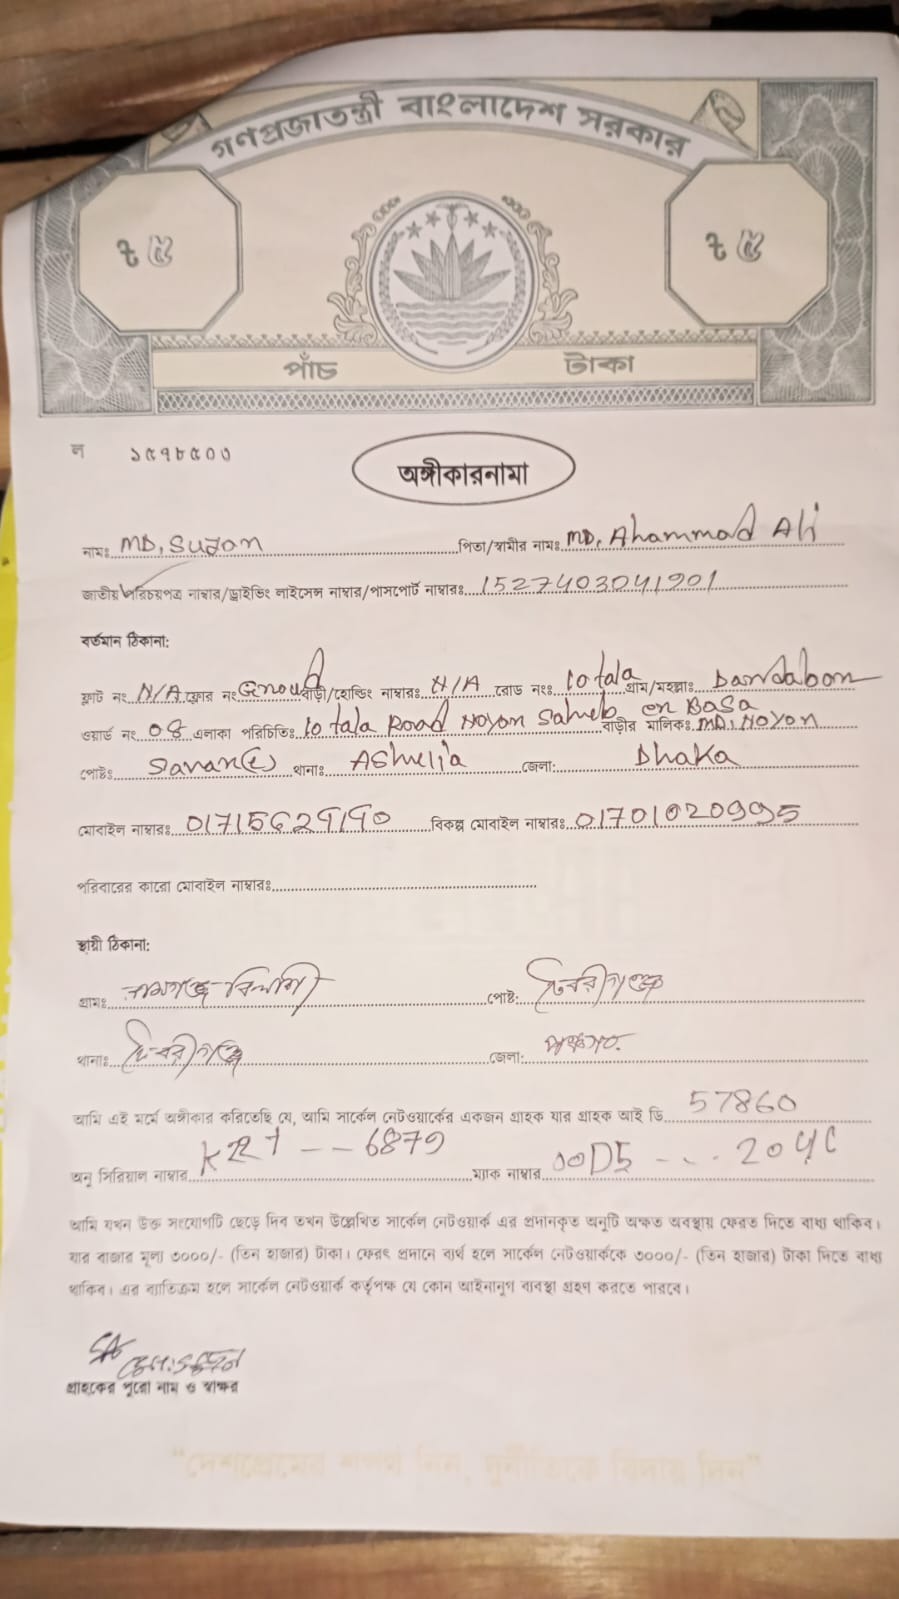 গণপ্রজাতন্ত্রী বাংলাদেশ সরকার
৳ ৫ ৳ ৫
পাঁচ টাকা
ল ১৫৭৮৫০০
অঙ্গীকারনামা
নামঃ MD, Suzon পিতা/স্বামীর নামঃ MD, Ahammad Ali
জাতীয় পরিচয়পত্র নাম্বার/ড্রাইভিং লাইসেন্স নাম্বার/পাসপোর্ট নাম্বারঃ 1527403041901
বর্তমান ঠিকানা:
ফ্লাট নং N/A ফ্লোর নং বাড়ী/হোল্ডিং নাম্বারঃ N/A রোড নংঃ 10 tala গ্রাম/মহল্লাঃ
ওয়ার্ড নং 08 এলাকা পরিচিতিঃ 10 tala Road Noyon Saheb er Basa বাড়ীর মালিকঃ MD, Noyon
পোষ্টঃ থানাঃ জেলা: Dhaka
মোবাইল নাম্বারঃ বিকল্প মোবাইল নাম্বারঃ
পরিবারের কারো মোবাইল নাম্বারঃ
স্থায়ী ঠিকানা:
গ্রামঃ পোষ্টঃ দেবীগঞ্জ
থানাঃ দেবীগঞ্জ জেলা: পঞ্চগড়
আমি এই মর্মে অঙ্গীকার করিতেছি যে, আমি সার্কেল নেটওয়ার্কের একজন গ্রাহক যার গ্রাহক আই ডি 57860
অনু সিরিয়াল নাম্বার -- 6879 ম্যাক নাম্বার
আমি যখন উক্ত সংযোগটি ছেড়ে দিব তখন উল্লেখিত সার্কেল নেটওয়ার্ক এর প্রদানকৃত অনুটি অক্ষত অবস্থায় ফেরত দিতে বাধ্য থাকিব।
যার বাজার মূল্য ৩০০০/- (তিন হাজার) টাকা। ফেরৎ প্রদানে ব্যর্থ হলে সার্কেল নেটওয়ার্ককে ৩০০০/- (তিন হাজার) টাকা দিতে বাধ্য
থাকিব। এর ব্যতিক্রম হলে সার্কেল নেটওয়ার্ক কর্তৃপক্ষ যে কোন আইনানুগ ব্যবস্থা গ্রহণ করতে পারবে।
গ্রাহকের পুরো নাম ও স্বাক্ষর
"দেশপ্রেমের শপথ নিন, দুর্নীতিকে বিদায় দিন"